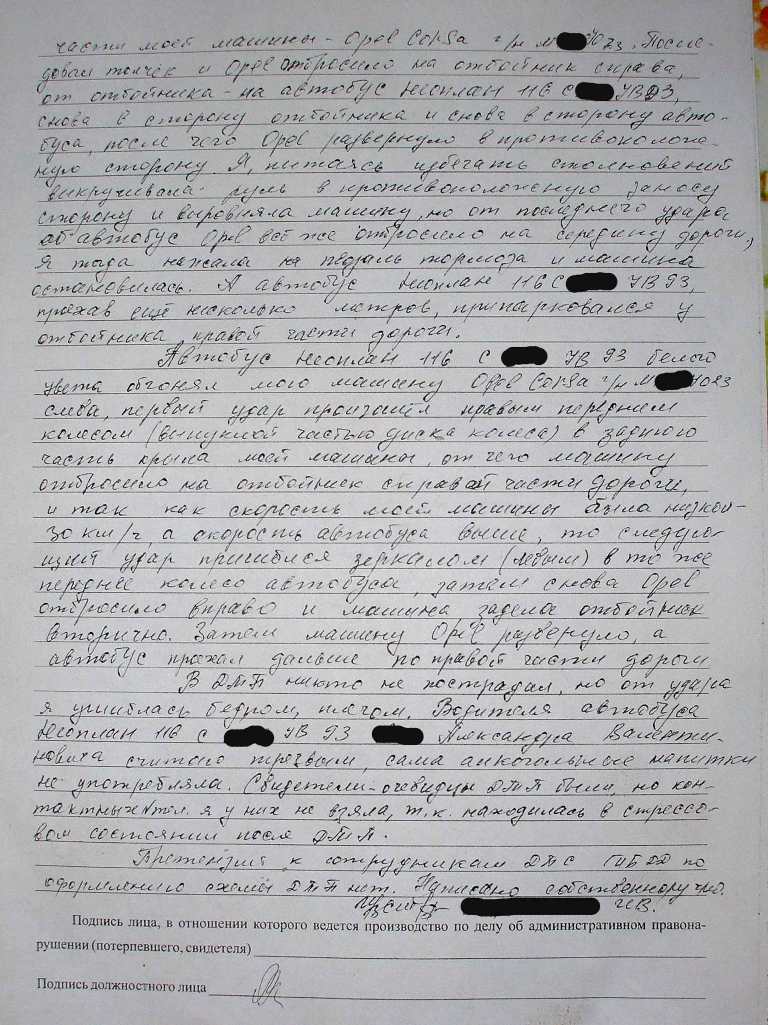 части моей машины - Opel Corsa г/н М 023. После-
довал толчек и Opel отбросило на отбойник справа,
от отбойника - на автобус Неоплан 116 С УВ 93,
снова в сторону отбойника и снова в сторону авто-
буса, после чего Opel развернуло в противополож-
ную сторону. Я, пытаясь избежать столкновений
выкручивала руль в противоположеную заносу
сторону и выровняла машину, но от последнего удара
об автобус Opel всё же отбросило на середину дороги,
я тогда нажала на педаль тормоза и машина
остановилась. А автобус Неоплан 116 С УВ 93,
проехав ещё несколько метров, припарковался у
отбойника правой части дороги.
Автобус Неоплан 116 С УВ 93 белого
цвета обгонял мою машину Opel Corsa г/н М 023
слева, первый удар произошел правым передним
колесом (выпуклой частью диска колеса) в заднюю
часть крыла моей машины, от чего машину
отбросило на отбойник справой части дороги,
и так как скорость моей машины была низкой-
30 км/ч, а скорость автобуса выше, то следую-
щий удар пришелся зеркалом (левым) в то же
переднее колесо автобуса, затем снова Opel
отбросило вправо и машина задела отбойник
вторично. Затем машину Opel развернуло, а
автобус проехал дальше по правой части дороги
В ДТП никто не пострадал, но от удара
я ушиблась бедром, плечом. Водителя автобуса
Неоплан 116 С УВ 93 Александра Валенти-
новича считаю трезвым, сама алкогольные напитки
не употребляла. Свидетели-очевидцы ДТП были, но кон-
тактных №тел. я у них не взяла, т.к. находилась в стрессо-
вом состоянии после ДТП.
Претензий к сотрудникам ДПС ГИБДД по
оформлению схемы ДТП нет. Написано собственноручно.
Подпись лица, в отношении которого ведется производство по делу об административном правона-
рушении (потерпевшего, свидетеля)
Подпись должностного лица